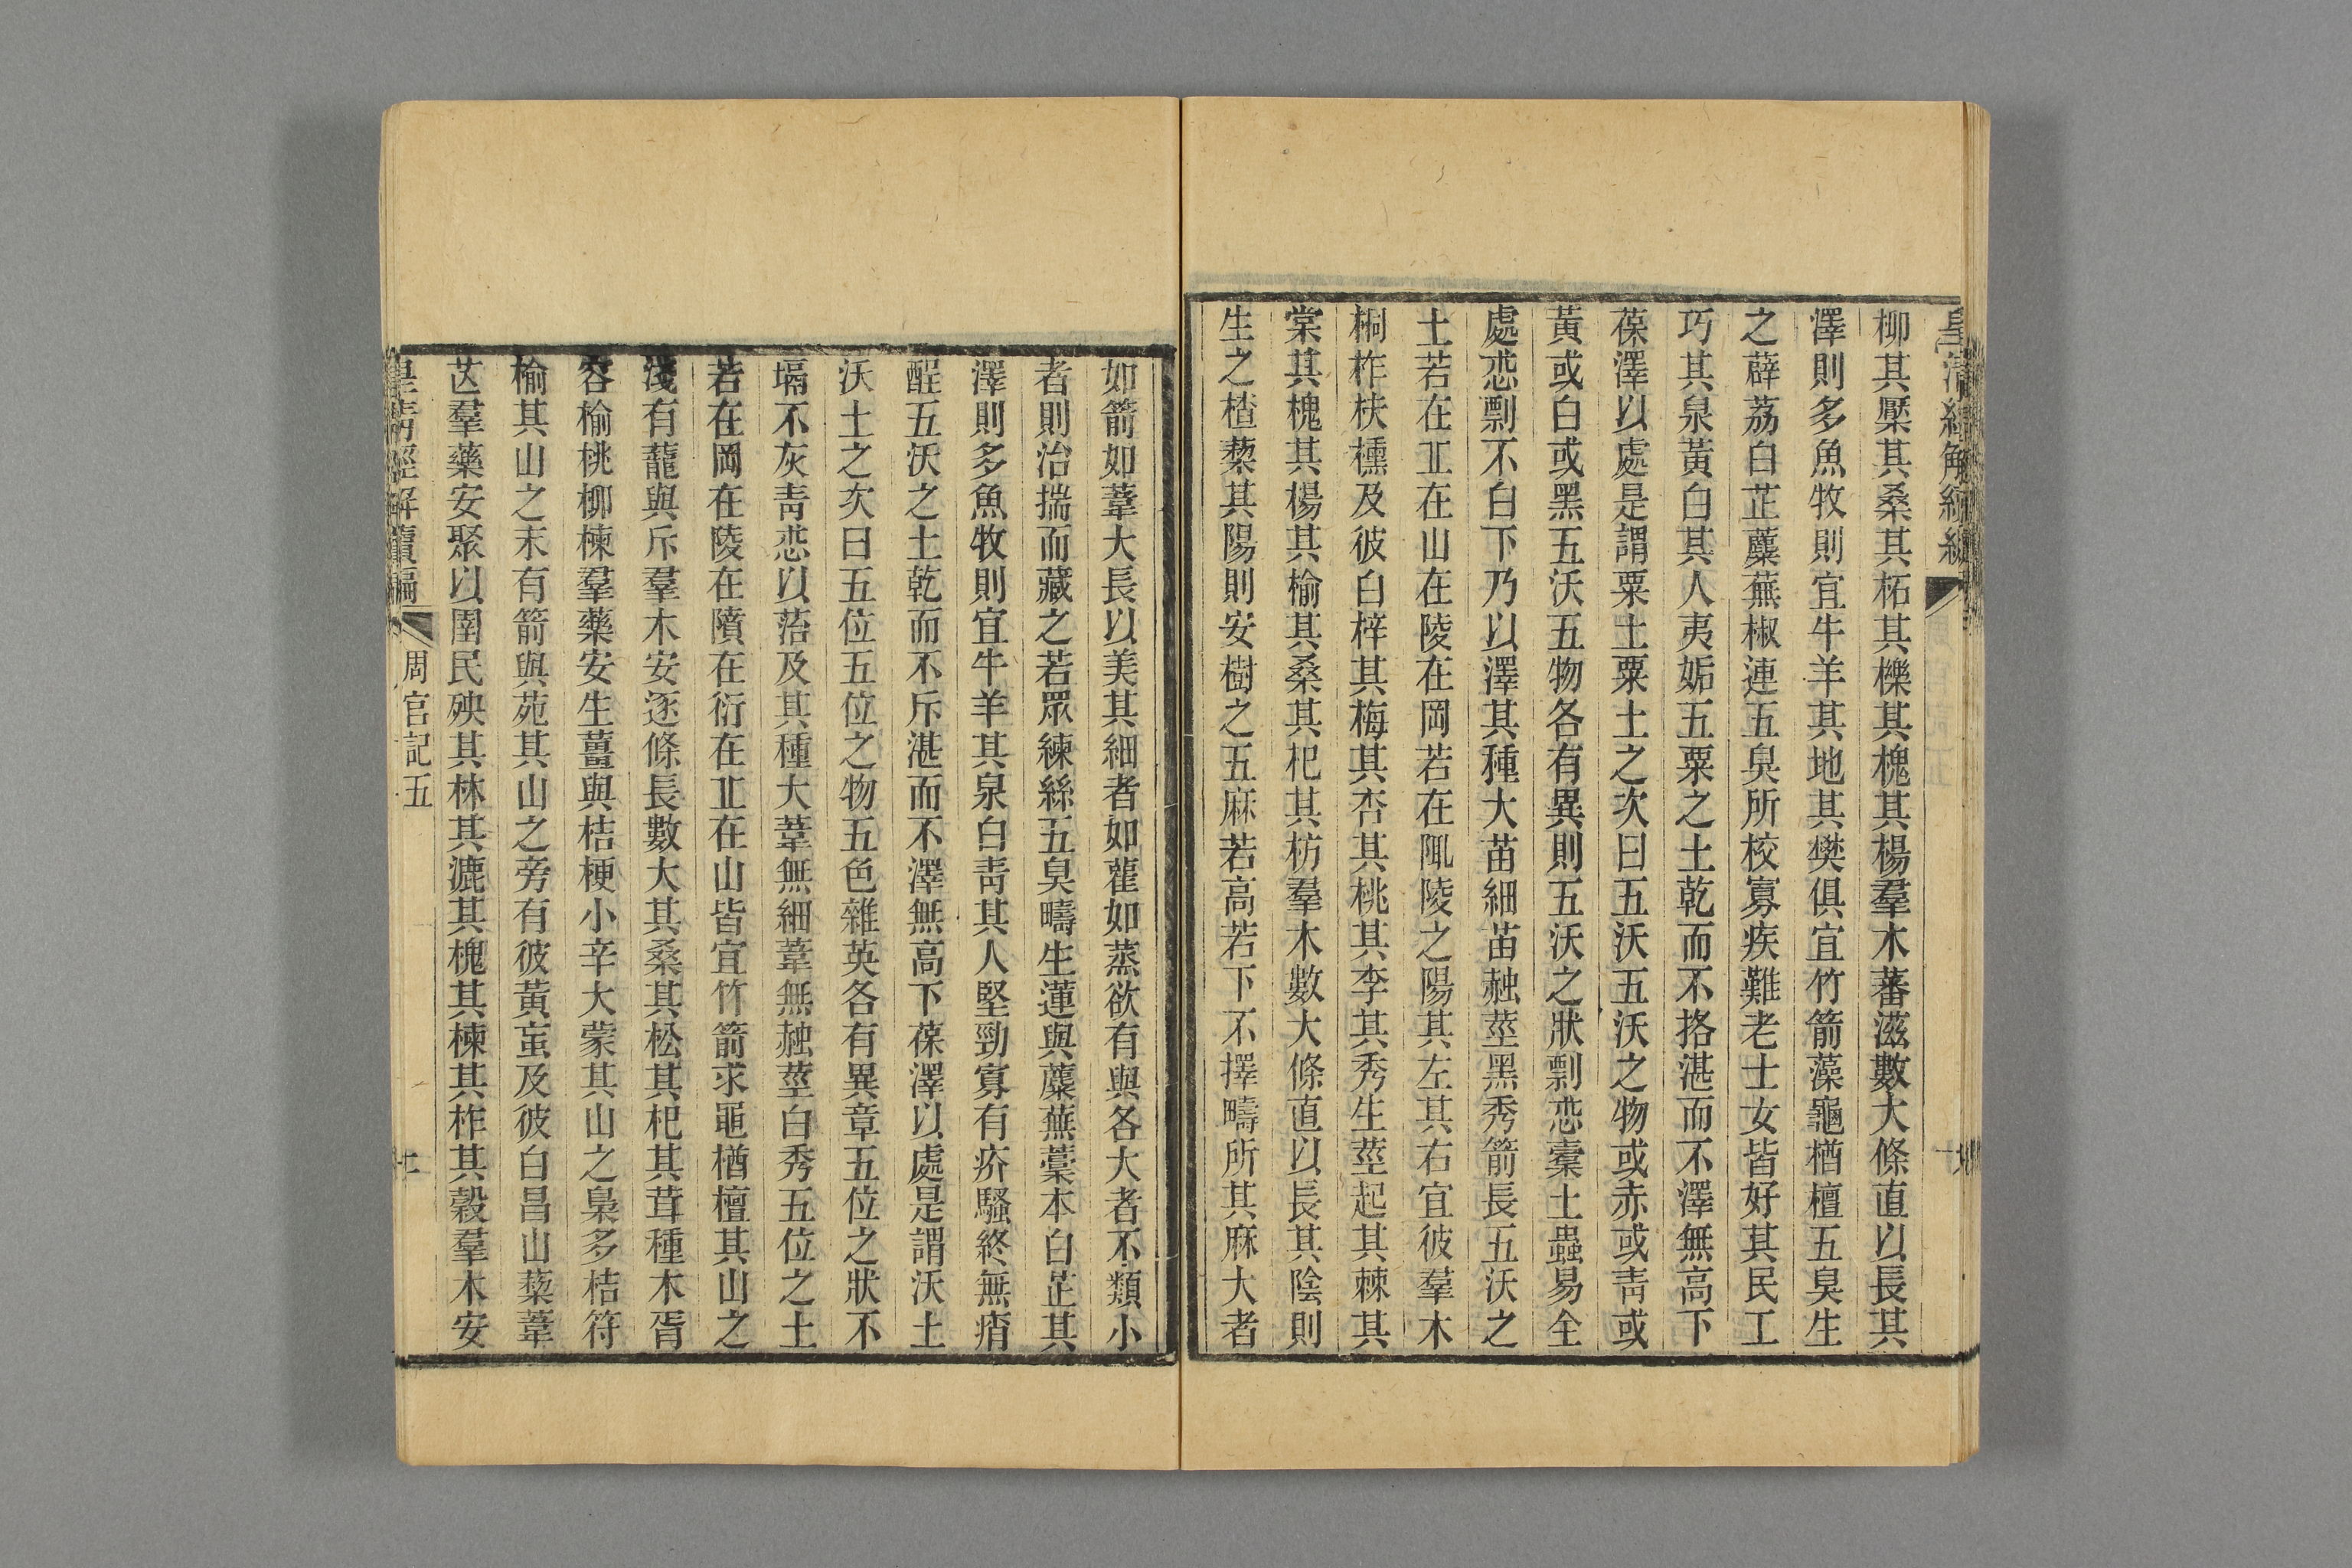 皇清經解續編
柳其檿其桑其柘其櫟其槐其楊羣木蕃滋數大條直以長其
澤則多魚牧則宜牛羊其地其樊俱宜竹箭藻龜楢檀五臭生
之薜荔白芷蘪蕪椒連五臭所校寡疾難老士女皆好其民工
巧其泉黃白其人夷姤五粟之土乾而不挌湛而不澤無高下
葆澤以處是謂粟土粟土之次曰五沃五沃之物或赤或靑或
黃或白或黑五沃五物各有異則五沃之狀剽怷橐土蟲易全
處怷剽不白下乃以澤其種大苗細苗赨莖黑秀箭長五沃之
土若在丘在山在陵在岡若在陬陵之陽其左其右宜彼羣木
桐柞枎櫄及彼白梓其梅其杏其桃其李其秀生莖起其棘其
棠其槐其楊其榆其桑其杞其枋羣木數大條直以長其陰則
生之楂蔾其陽則安樹之五麻若高若下不擇疇所其麻大者
如箭如葦大長以美其細者如雚如蒸欲有與各大者不類小
者則治揣而藏之若眾練絲五臭疇生蓮與蘪蕪藁本白芷其
澤則多魚牧則宜牛羊其泉白靑其人堅勁寡有疥騷終無痟
酲五沃之土乾而不斥湛而不澤無高下葆澤以處是謂沃土
沃土之次曰五位五位之物五色雜英各有異章五位之狀不
塥不灰靑怷以菭及其種大葦無細葦無赨莖白秀五位之土
若在岡在陵在隫在衍在丘在山皆宜竹箭求黽楢檀其山之
淺有蘢與斥羣木安逐條長數大其桑其松其杞其茸種木胥
容榆桃柳楝羣藥安生薑與桔梗小辛大蒙其山之梟多桔符
榆其山之末有箭與苑其山之旁有彼黃䖟及彼白昌山蔾葦
芒羣藥安聚以圉民殃其林其漉其槐其楝其柞其穀羣木安
皇清經解續編
周官記五